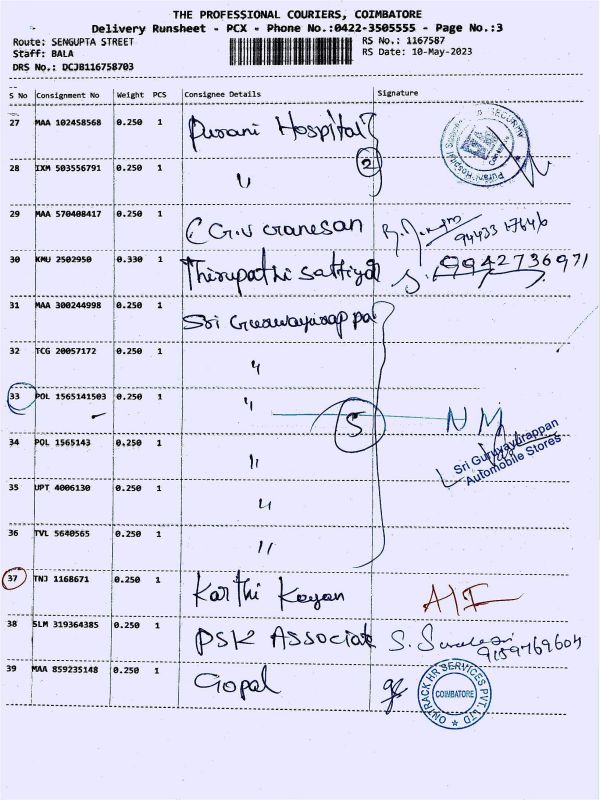 THE PROFESSIONAL COURIERS, COIMBATORE
Delivery Runsheet - PCX - Phone No.:0422-3505555 - Page No.:3
Route: SENGUPTA STREET RS No.: 1167587
Staff: BALA RS Date: 10-May-2023
DRS No.: DCJB116758703
S No Consignment No Weight PCS Consignee Details Signature
27 MAA 102458568 0.250 1 Purani Hospital
2
28 IXM 503556791 0.250 1 "
29 MAA 570408417 0.250 1
30 KMU 2502950 0.330 1 Thirupathi 9942736971
31 MAA 300244998 0.250 1 Sri
32 TCG 20057172 0.250 1 "
33 POL 1565141503 0.250 1 " 5 NM
34 POL 1565143 0.250 1 "
Sri Guruvayurappan
Automobile Stores
35 UPT 4006130 0.250 1 "
36 TVL 5640565 0.250 1 "
37 TNJ 1168671 0.250 1 Karthi Keyan
38 SLM 319364385 0.250 1 PSK Associat
39 MAA 859235148 0.250 1 Gopal
ONTRACK HR SERVICES PVT. LTD
COIMBATORE